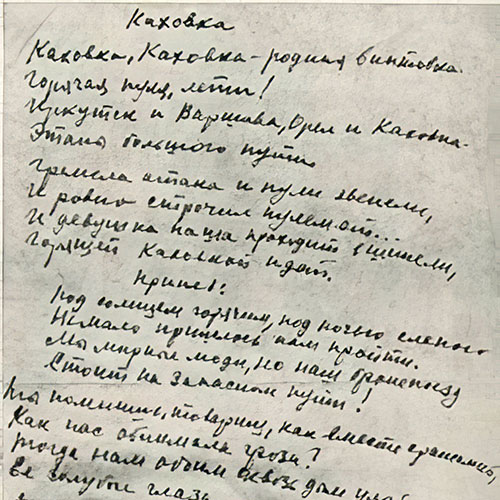 Каховка
Каховка, Каховка - родная винтовка.
Горячая пуля, лети!
Иркутск и Варшава, Орел и Каховка -
Этапы большого пути.
Гремела атака и пули звенели,
И ровно строчил пулемет...
И девушка наша проходит в шинели,
Горящей Каховкой идет.
Припев:
Под солнцем горячим, под ночью слепою
Немало пришлось нам пройти.
Мы мирные люди, но наш бронепоезд
Стоит на запасном пути!
Ты помнишь, товарищ, как вместе сражались
Как нас обнимала гроза?
Тогда нам обоим сквозь дым улыб
Ее голубые глаза